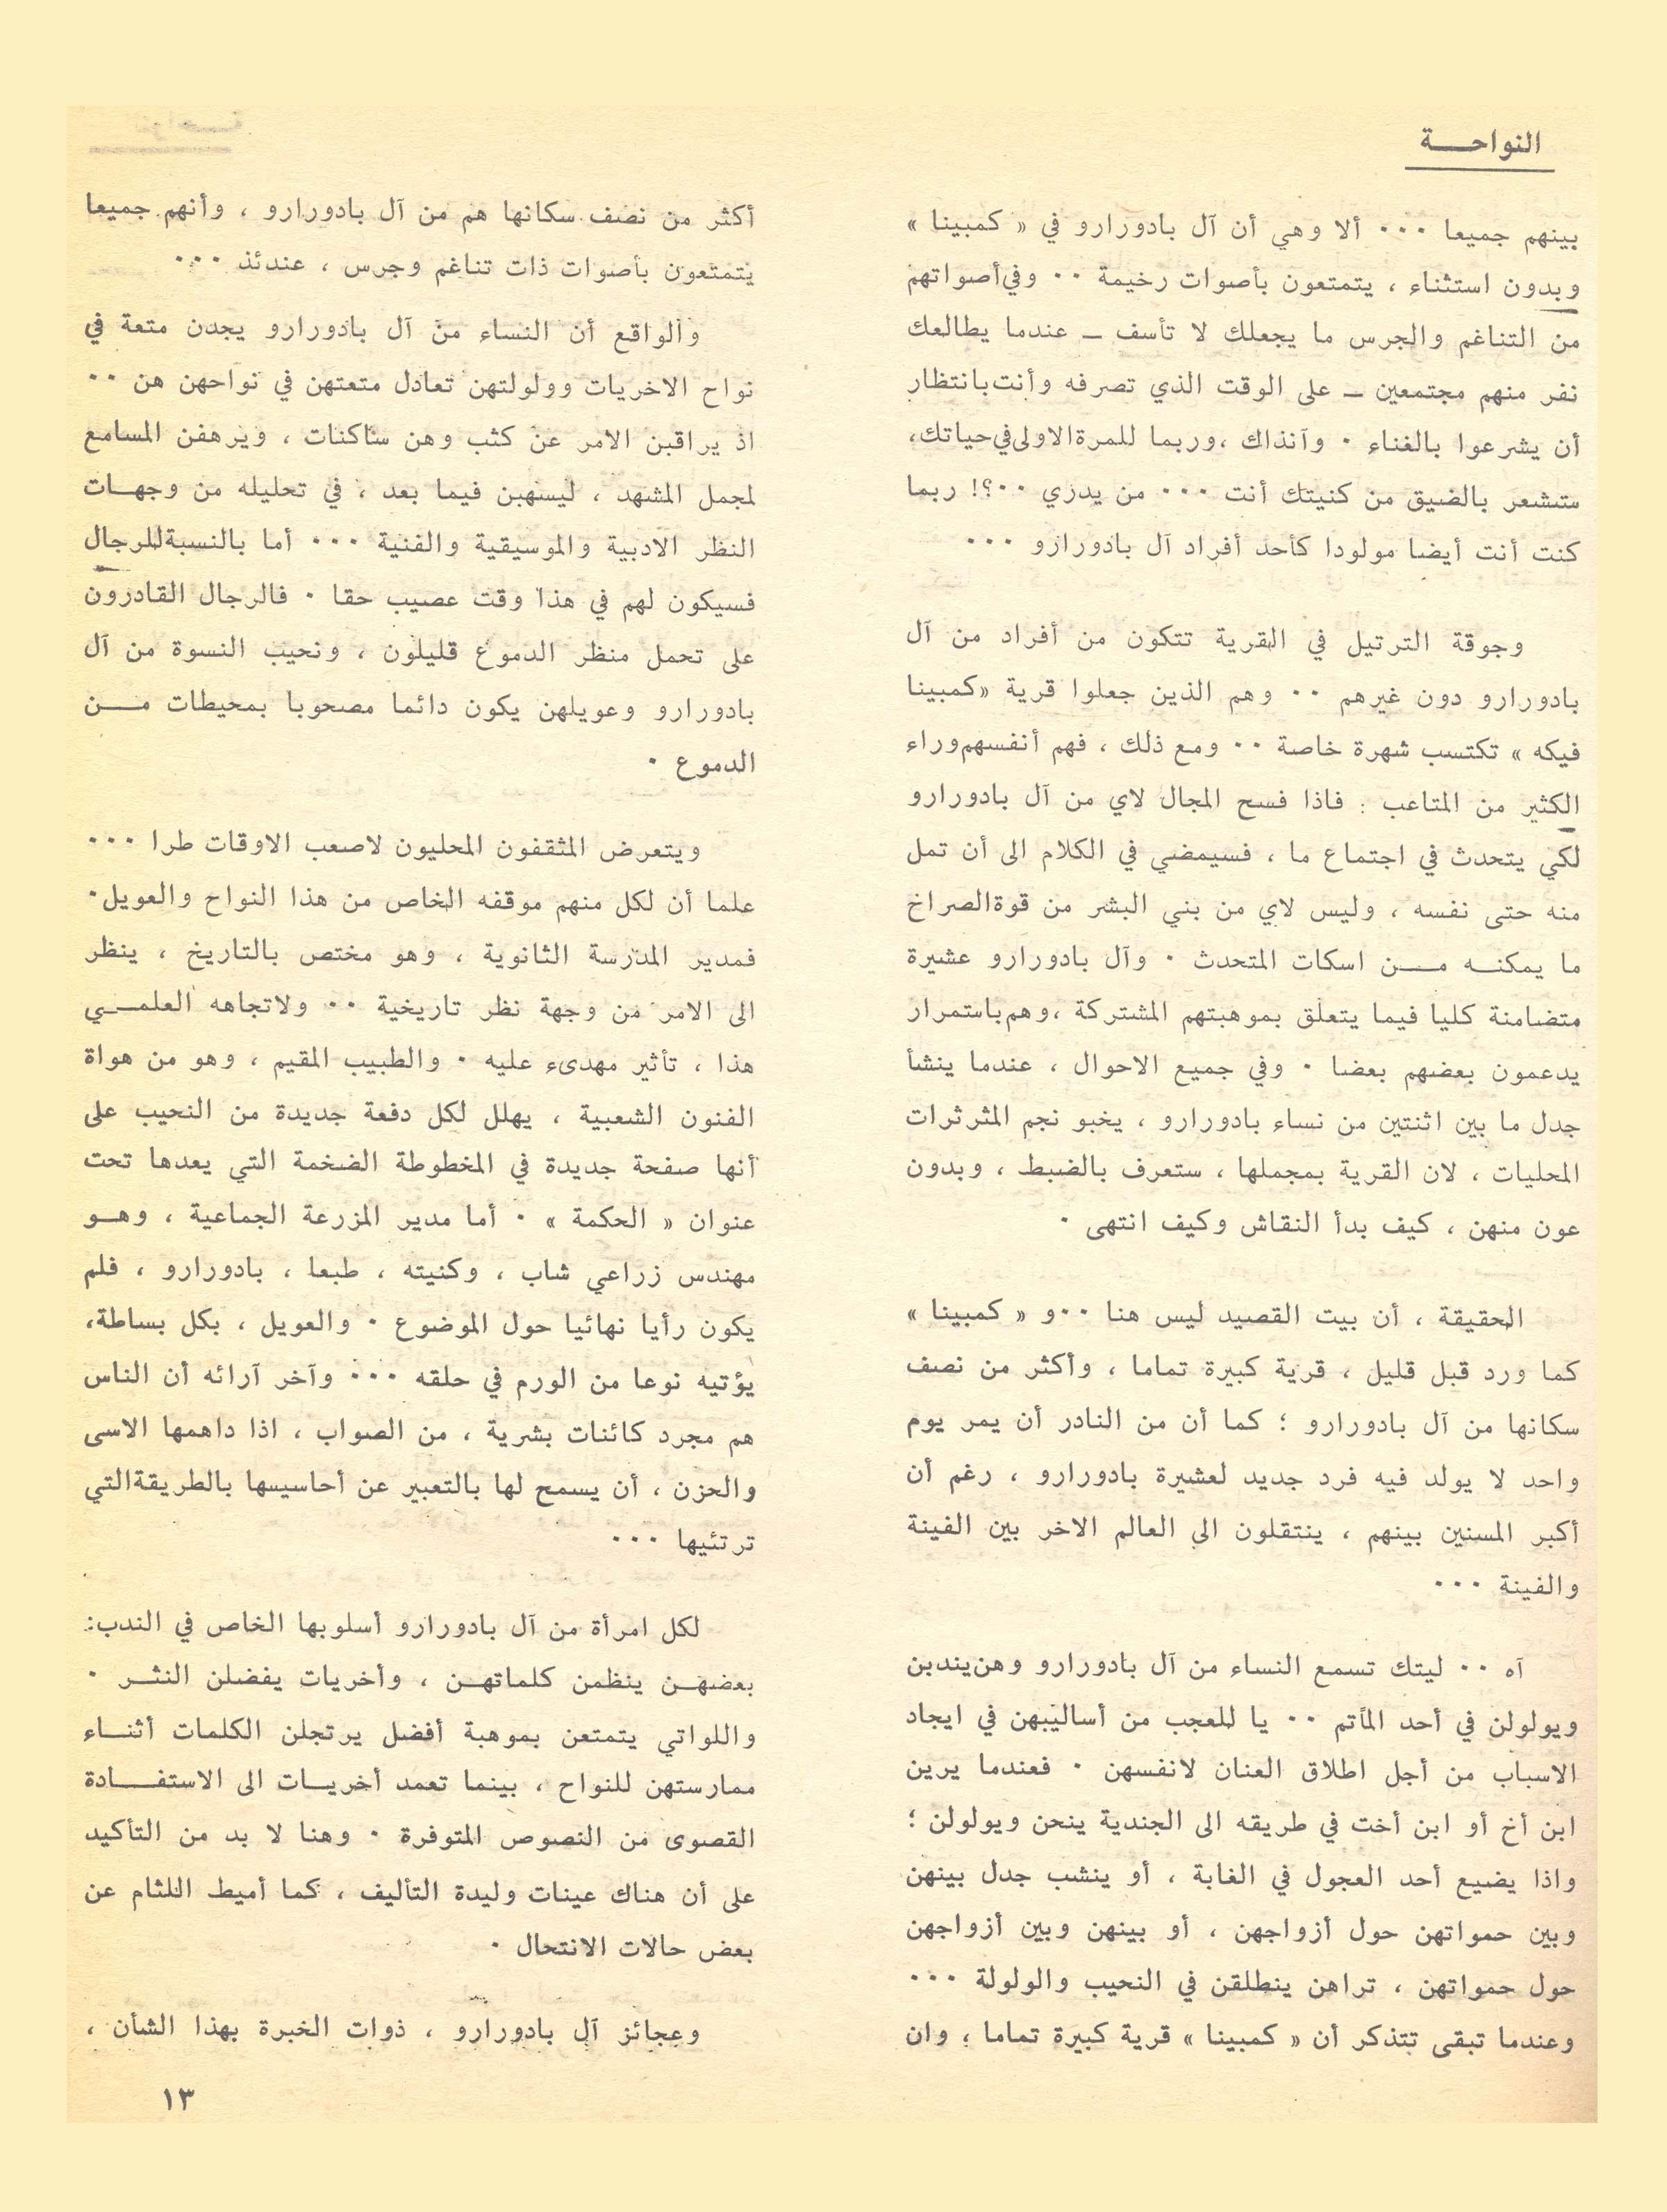 النواحـــة
بينهم جميعا ٠٠٠ ألا وهي أن آل بادورارو في « كمبينا »
وبدون استثناء ، يتمتعون بأصوات رخيمة ٠٠ وفي أصواتهم
من التناغم والجرس ما يجعلك لا تأسف ـ عندما يطالعك
نفر منهم مجتمعين ـ على الوقت الذي تصرفه وأنت بانتظار
أن يشرعوا بالغناء ٠ وآنذاك ، وربما للمرة الاولى في حياتك،
ستشعر بالضيق من كنيتك أنت ٠٠٠ من يدري ٠٠؟! ربما
كنت أنت أيضا مولودا كأحد أفراد آل بادورارو ٠٠٠
وجوقة الترتيل في القرية تتكون من أفراد من آل
بادورارو دون غيرهم ٠٠ وهم الذين جعلوا قرية «كمبينا
فيكه » تكتسب شهرة خاصة ٠٠ ومع ذلك ، فهم أنفسهم وراء
الكثير من المتاعب : فاذا فسح المجال لاي من آل بادورارو
لكي يتحدث في اجتماع ما ، فسيمضي في الكلام الى أن تمل
منه حتى نفسه ، وليس لاي من بني البشر من قوة الصراخ
ما يمكنــه مــــن اسكات المتحدث ٠ وآل بادورارو عشيرة
متضامنة كليا فيما يتعلق بموهبتهم المشتركة ، وهم باستمرار
يدعمون بعضهم بعضا ٠ وفي جميع الاحوال ، عندما ينشأ
جدل ما بين اثنتين من نساء بادورارو ، يخبو نجم المثرثرات
المحليات ، لان القرية بمجملها ، ستعرف بالضبط ، وبدون
عون منهن ، كيف بدأ النقاش وكيف انتهى ٠
الحقيقة ، أن بيت القصيد ليس هنا ٠٠ و « كمبينا »
كما ورد قبل قليل ، قرية كبيرة تماما ، وأكثر من نصف
سكانها من آل بادورارو ؛ كما أن من النادر أن يمر يوم
واحد لا يولد فيه فرد جديد لعشيرة بادورارو ، رغم أن
أكبر المسنين بينهم ، ينتقلون الى العالم الاخر بين الفينة
والفينة ٠٠٠
آه ٠٠ ليتك تسمع النساء من آل بادورارو وهن يندبن
ويولولن في أحد المآتم ٠٠ يا للعجب من أساليبهن في ايجاد
الاسباب من أجل اطلاق العنان لانفسهن ٠ فعندما يرين
ابن أخ أو ابن أخت في طريقه الى الجندية ينحن ويولولن ؛
واذا يضيع أحد العجول في الغابة ، أو ينشب جدل بينهن
وبين حمواتهن حول أزواجهن ، أو بينهن وبين أزواجهن
حول حمواتهن ، تراهن ينطلقن في النحيب والولولة ٠٠٠
وعندما تبقى تتذكر أن « كمبينا » قرية كبيرة تماما ، وان
أكثر من نصف سكانها هم من آل بادورارو ، وأنهم جميعا
يتمتعون بأصوات ذات تناغم وجرس ، عندئذ ٠٠٠
والواقع أن النساء من آل بادورارو يجدن متعة في
نواح الاخريات وولولتهن تعادل متعتهن في نواحهن هن ٠٠
اذ يراقبن الامر عن كثب وهن ساكنات ، ويرهفن المسامع
لمجمل المشهد ، ليسهبن فيما بعد ، في تحليله من وجهــات
النظر الادبية والموسيقية والفنية ٠٠٠ أما بالنسبة للرجال
فسيكون لهم في هذا وقت عصيب حقا ٠ فالرجال القادرون
على تحمل منظر الدموع قليلون ، ونحيب النسوة من آل
بادورارو وعويلهن يكون دائما مصحوبا بمحيطات مــــن
الدموع ٠
ويتعرض المثقفون المحليون لاصعب الاوقات طرا ٠٠٠
علما أن لكل منهم موقفه الخاص من هذا النواح والعويل٠
فمدير المدرسة الثانوية ، وهو مختص بالتاريخ ، ينظر
الى الامر من وجهة نظر تاريخية ٠٠ ولاتجاهه العلمــــي
هذا ، تأثير مهدىء عليه ٠ والطبيب المقيم ، وهو من هواة
الفنون الشعبية ، يهلل لكل دفعة جديدة من النحيب على
أنها صفحة جديدة في المخطوطة الضخمة التي يعدها تحت
عنوان « الحكمة » ٠ أما مدير المزرعة الجماعية ، وهــو
مهندس زراعي شاب ، وكنيته ، طبعا ، بادورارو ، فلم
يكون رأيا نهائيا حول الموضوع ٠ والعويل ، بكل بساطة،
يؤتيه نوعا من الورم في حلقه ٠٠٠ وآخر آرائه أن الناس
هم مجرد كائنات بشرية ، من الصواب ، اذا داهمها الاسى
والحزن ، أن يسمح لها بالتعبير عن أحاسيسها بالطريقة التي
ترتئيها ٠٠٠
لكل امرأة من آل بادورارو أسلوبها الخاص في الندب:
بعضهــن ينظمن كلماتهــن ، وأخريات يفضلن النثــر ٠
واللواتي يتمتعن بموهبة أفضل يرتجلن الكلمات أثنــاء
ممارستهن للنواح ، بينما تعمد أخريــات الى الاستفــــادة
القصوى من النصوص المتوفرة ٠ وهنا لا بد من التأكيد
على أن هناك عينات وليدة التأليف ، كما أميط اللثام عن
بعض حالات الانتحال ٠
وعجائز آل بادورارو ، ذوات الخبرة بهذا الشأن ،
١٣